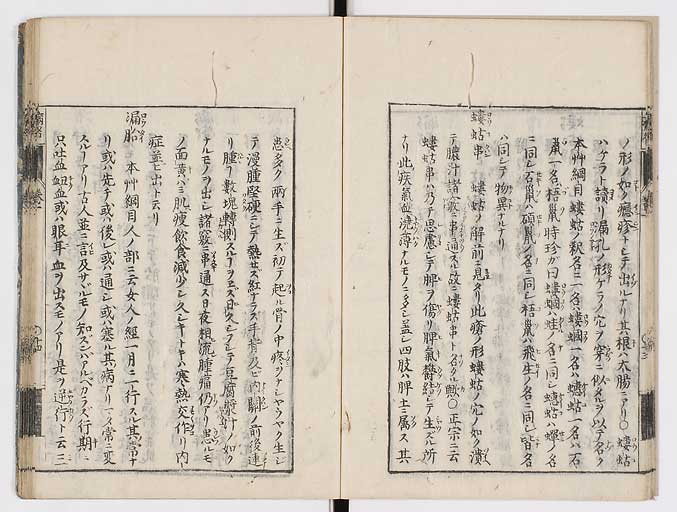 ノ形ノ如ク癮疹トシテ出ルナリ其根ハ太腸ニアリ〇螻蛄
ハケラト讀リ漏孔ノ形ケラノ穴ヲ穿ニ似タルヲ以テ名ク
本艸綱目螻蛄ノ釈名ニ一名ハ螻蟈一名ハ蟪蛄一名ハ石
鼠一名梧鼠時珍カ曰螻蟈ハ蛙ノ名ニ同シ蟪蛄ハ蟬ノ名
ニ同シ石鼠ハ碩鼠ノ名ニ同シ梧鼠ハ飛生ノ名ニ同シ皆名
ハ同シテ物異ナルナリ
螻蛄串 螻蛄ノ解前ニ見タリ此瘡ノ形螻蛄ノ穴ノ如ク潰
テ膿汁諸竅ニ串通スル故ニ螻蛄串ト名クル歟〇正宗ニ云
螻蛄串ハ乃チ思慮シテ脾ヲ傷リ脾氣欝結シテ生スル所
ナリ此疾氣血澆薄ナルモノニ多シ蓋シ四肢ハ脾土ニ属ス其
患多ク兩手ニ生ズ初テ起ル骨ノ中疼ヲナシヤウヤク生シ
テ漫腫堅硬ニシテ熱セズ紅ナラズ手背及ヒ内關ノ前後連
リ腫ノ數塊轉側スル丁ヲエズ日久シフシテ豆腐漿汁ノ如ク
ナルモノヲ出シ諸竅ニ串通ス日夜相流腫痛仍アリ患ルモ
ノ面黄ハミ肌痩飲食減少シ久シキトキハ寒熱交作リ内
症並ヒ出ト云リ
漏胎 本艸綱目人ノ部ニ云女人ノ經一月ニ一行スルハ其常ナ
リ或ハ先チ或ハ後レ或ハ通シ或ハ塞ルハ其病ナリ一タヒ常ニ変
スル丁アリ古人並ニ言及サヾルモノ知スンハアルベカラズ行期ニ
只吐血衄血或ハ眼耳血ヲ出スモノアリ是ヲ逆行ト云三